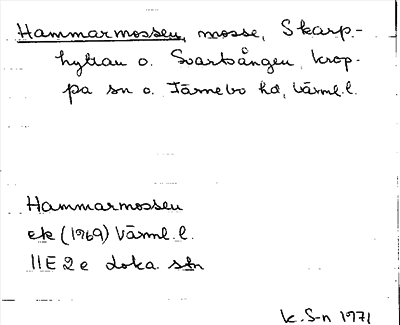 Hammarmossen, mosse, Skarp-
hyttan o. Svartsången, Krop-
pa sn o. Färnebo hd, Värml. l.
Hammarmossen
ek (1969) Värml. l.
11E 2e doka. sbn
K. S-n 1971